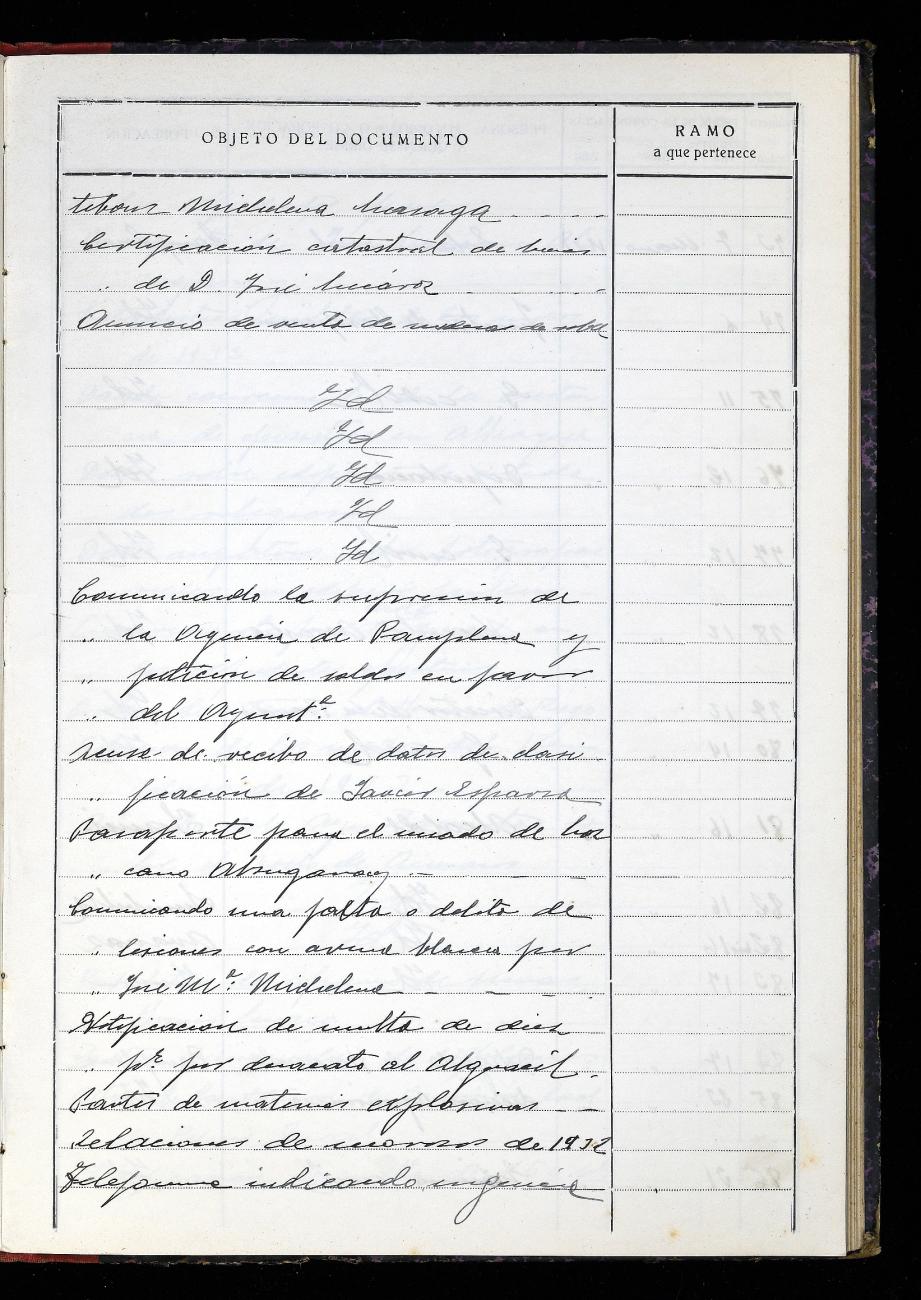 OBJETO DEL DOCUMENTO
RAMO
a que pertenece
teban Michelena
Certificación catastral de bienes
" de D. José
Anuncio de venta de maderas de roble
Id
Id
Id
Id
Id
Comunicando la supresión de
" la Agencia de Pamplona y
" petición de saldos en favor
" del Ayuntº.
Acuse de recibo de datos de clasi
" ficación de Javier Esparza
Pasaporte para el criado de
" cano
Comunicando una falta o delito de
" lesiones con arma blanca por
" José Mª. Michelena
Notificación de multa de diez
" pts. por desacato al Alguacil
Partes de materias explosivas
Relaciones de morosos de 1932
indicando urgencia